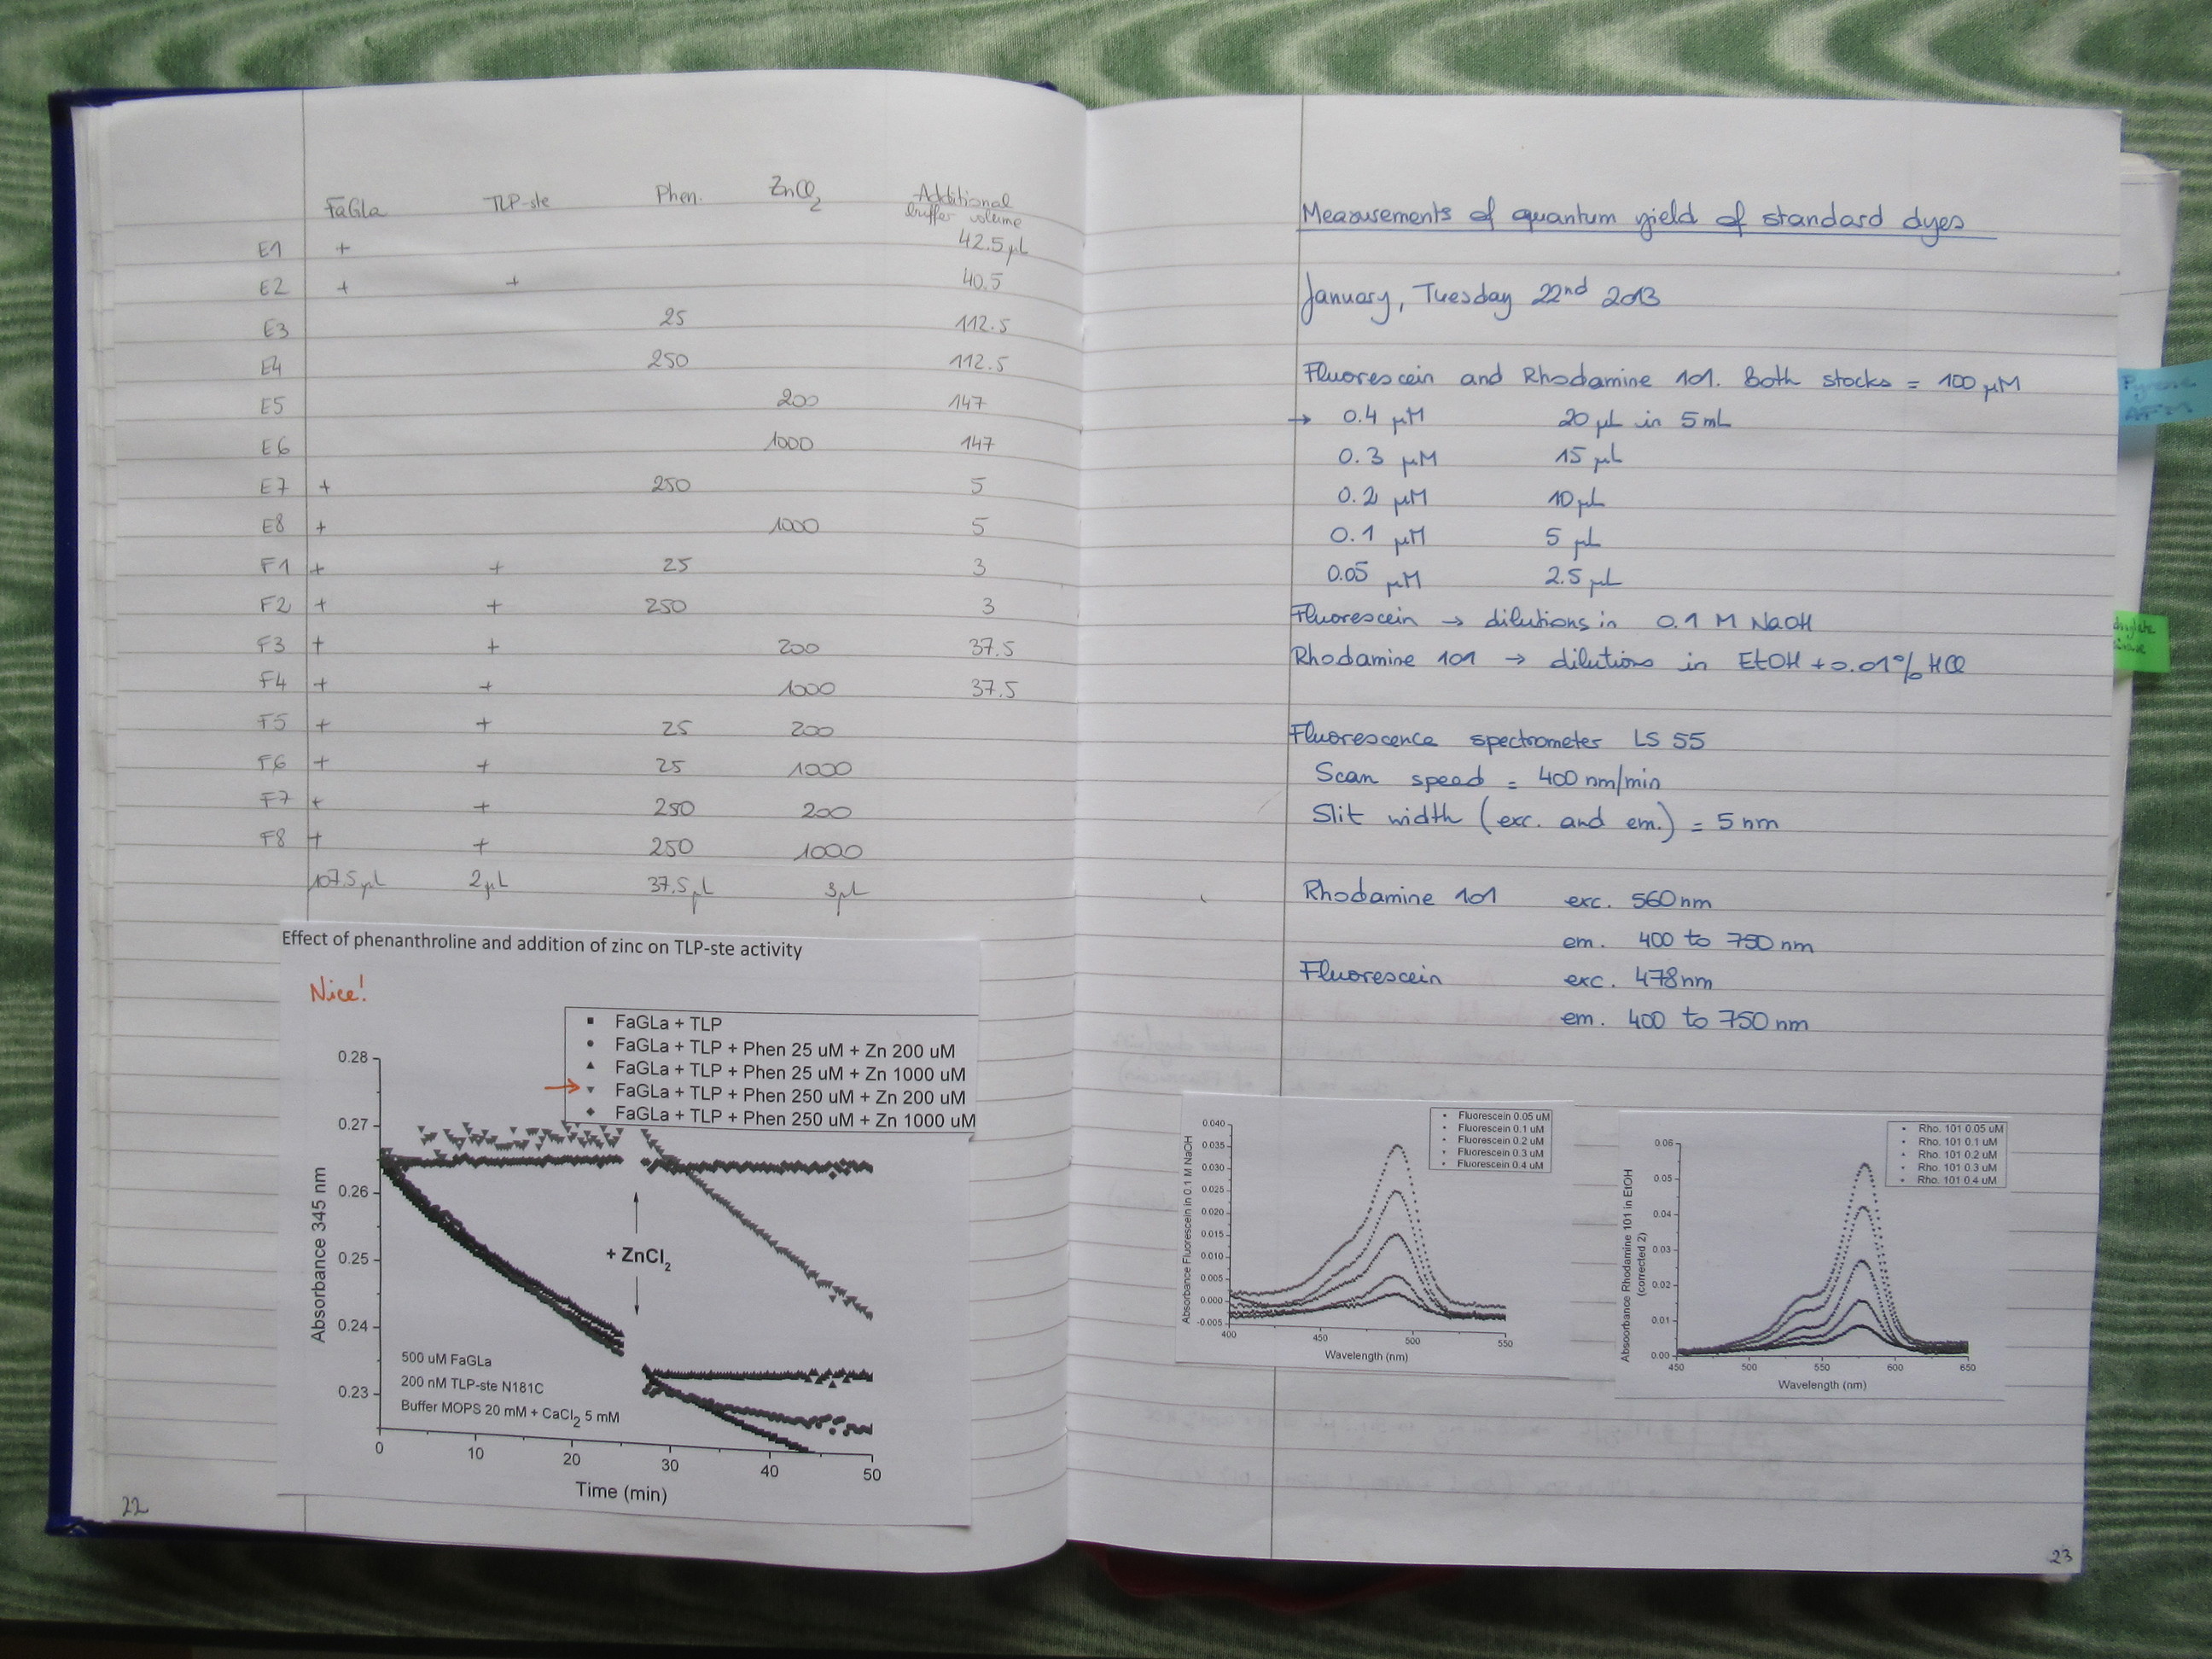 FaGLa TLP-ste Phen. ZnCl2 Additional buffer volume
E1 + 42.5 µL
E2 + + 40.5
E3 25 112.5
E4 250 112.5
E5 200 147
E6 1000 147
E7 + 250 5
E8 + 1000 5
F1 + + 25 3
F2 + + 250 3
F3 + + 200 37.5
F4 + + 1000 37.5
F5 + + 25 200
F6 + + 25 1000
F7 + + 250 200
F8 + + 250 1000
107.5 µL 2 µL 37.5 µL 3 µL
Effect of phenanthroline and addition of zinc on TLP-ste activity
Nice!
FaGLa + TLP
FaGLa + TLP + Phen 25 uM + Zn 200 uM
FaGLa + TLP + Phen 25 uM + Zn 1000 uM
→ FaGLa + TLP + Phen 250 uM + Zn 200 uM
FaGLa + TLP + Phen 250 uM + Zn 1000 uM
0.28
0.27
0.26
0.25
0.24
0.23
Absorbance 345 nm
+ ZnCl2
500 uM FaGLa
200 nM TLP-ste N181C
Buffer MOPS 20 mM + CaCl2 5 mM
0 10 20 30 40 50
Time (min)
22
Measurements of quantum yield of standard dyes
January, Tuesday 22nd 2013
Fluorescein and Rhodamine 101. Both stocks = 100 µM
→ 0.4 µM 20 µL in 5 mL
0.3 µM 15 µL
0.2 µM 10 µL
0.1 µM 5 µL
0.05 µM 2.5 µL
Fluorescein → dilutions in 0.1 M NaOH
Rhodamine 101 → dilutions in EtOH + 0.01% HCl
Fluorescence spectrometer LS 55
Scan speed = 400 nm/min
Slit width (exc. and em.) = 5 nm
Rhodamine 101 exc. 560 nm
em. 400 to 750 nm
Fluorescein exc. 478 nm
em. 400 to 750 nm
Fluorescein 0.05 uM
Fluorescein 0.1 uM
Fluorescein 0.2 uM
Fluorescein 0.3 uM
Fluorescein 0.4 uM
0.040
0.035
0.030
0.025
0.020
0.015
0.010
0.005
0.000
-0.005
Absorbance Fluorescein in 0.1 M NaOH
400 450 500 550
Wavelength (nm)
Rho. 101 0.05 uM
Rho. 101 0.1 uM
Rho. 101 0.2 uM
Rho. 101 0.3 uM
Rho. 101 0.4 uM
0.06
0.05
0.04
0.03
0.02
0.01
0.00
Absoorbance Rhodamine 101 in EtOH
(corrected 2)
450 500 550 600 650
Wavelength (nm)
23
Pyrene